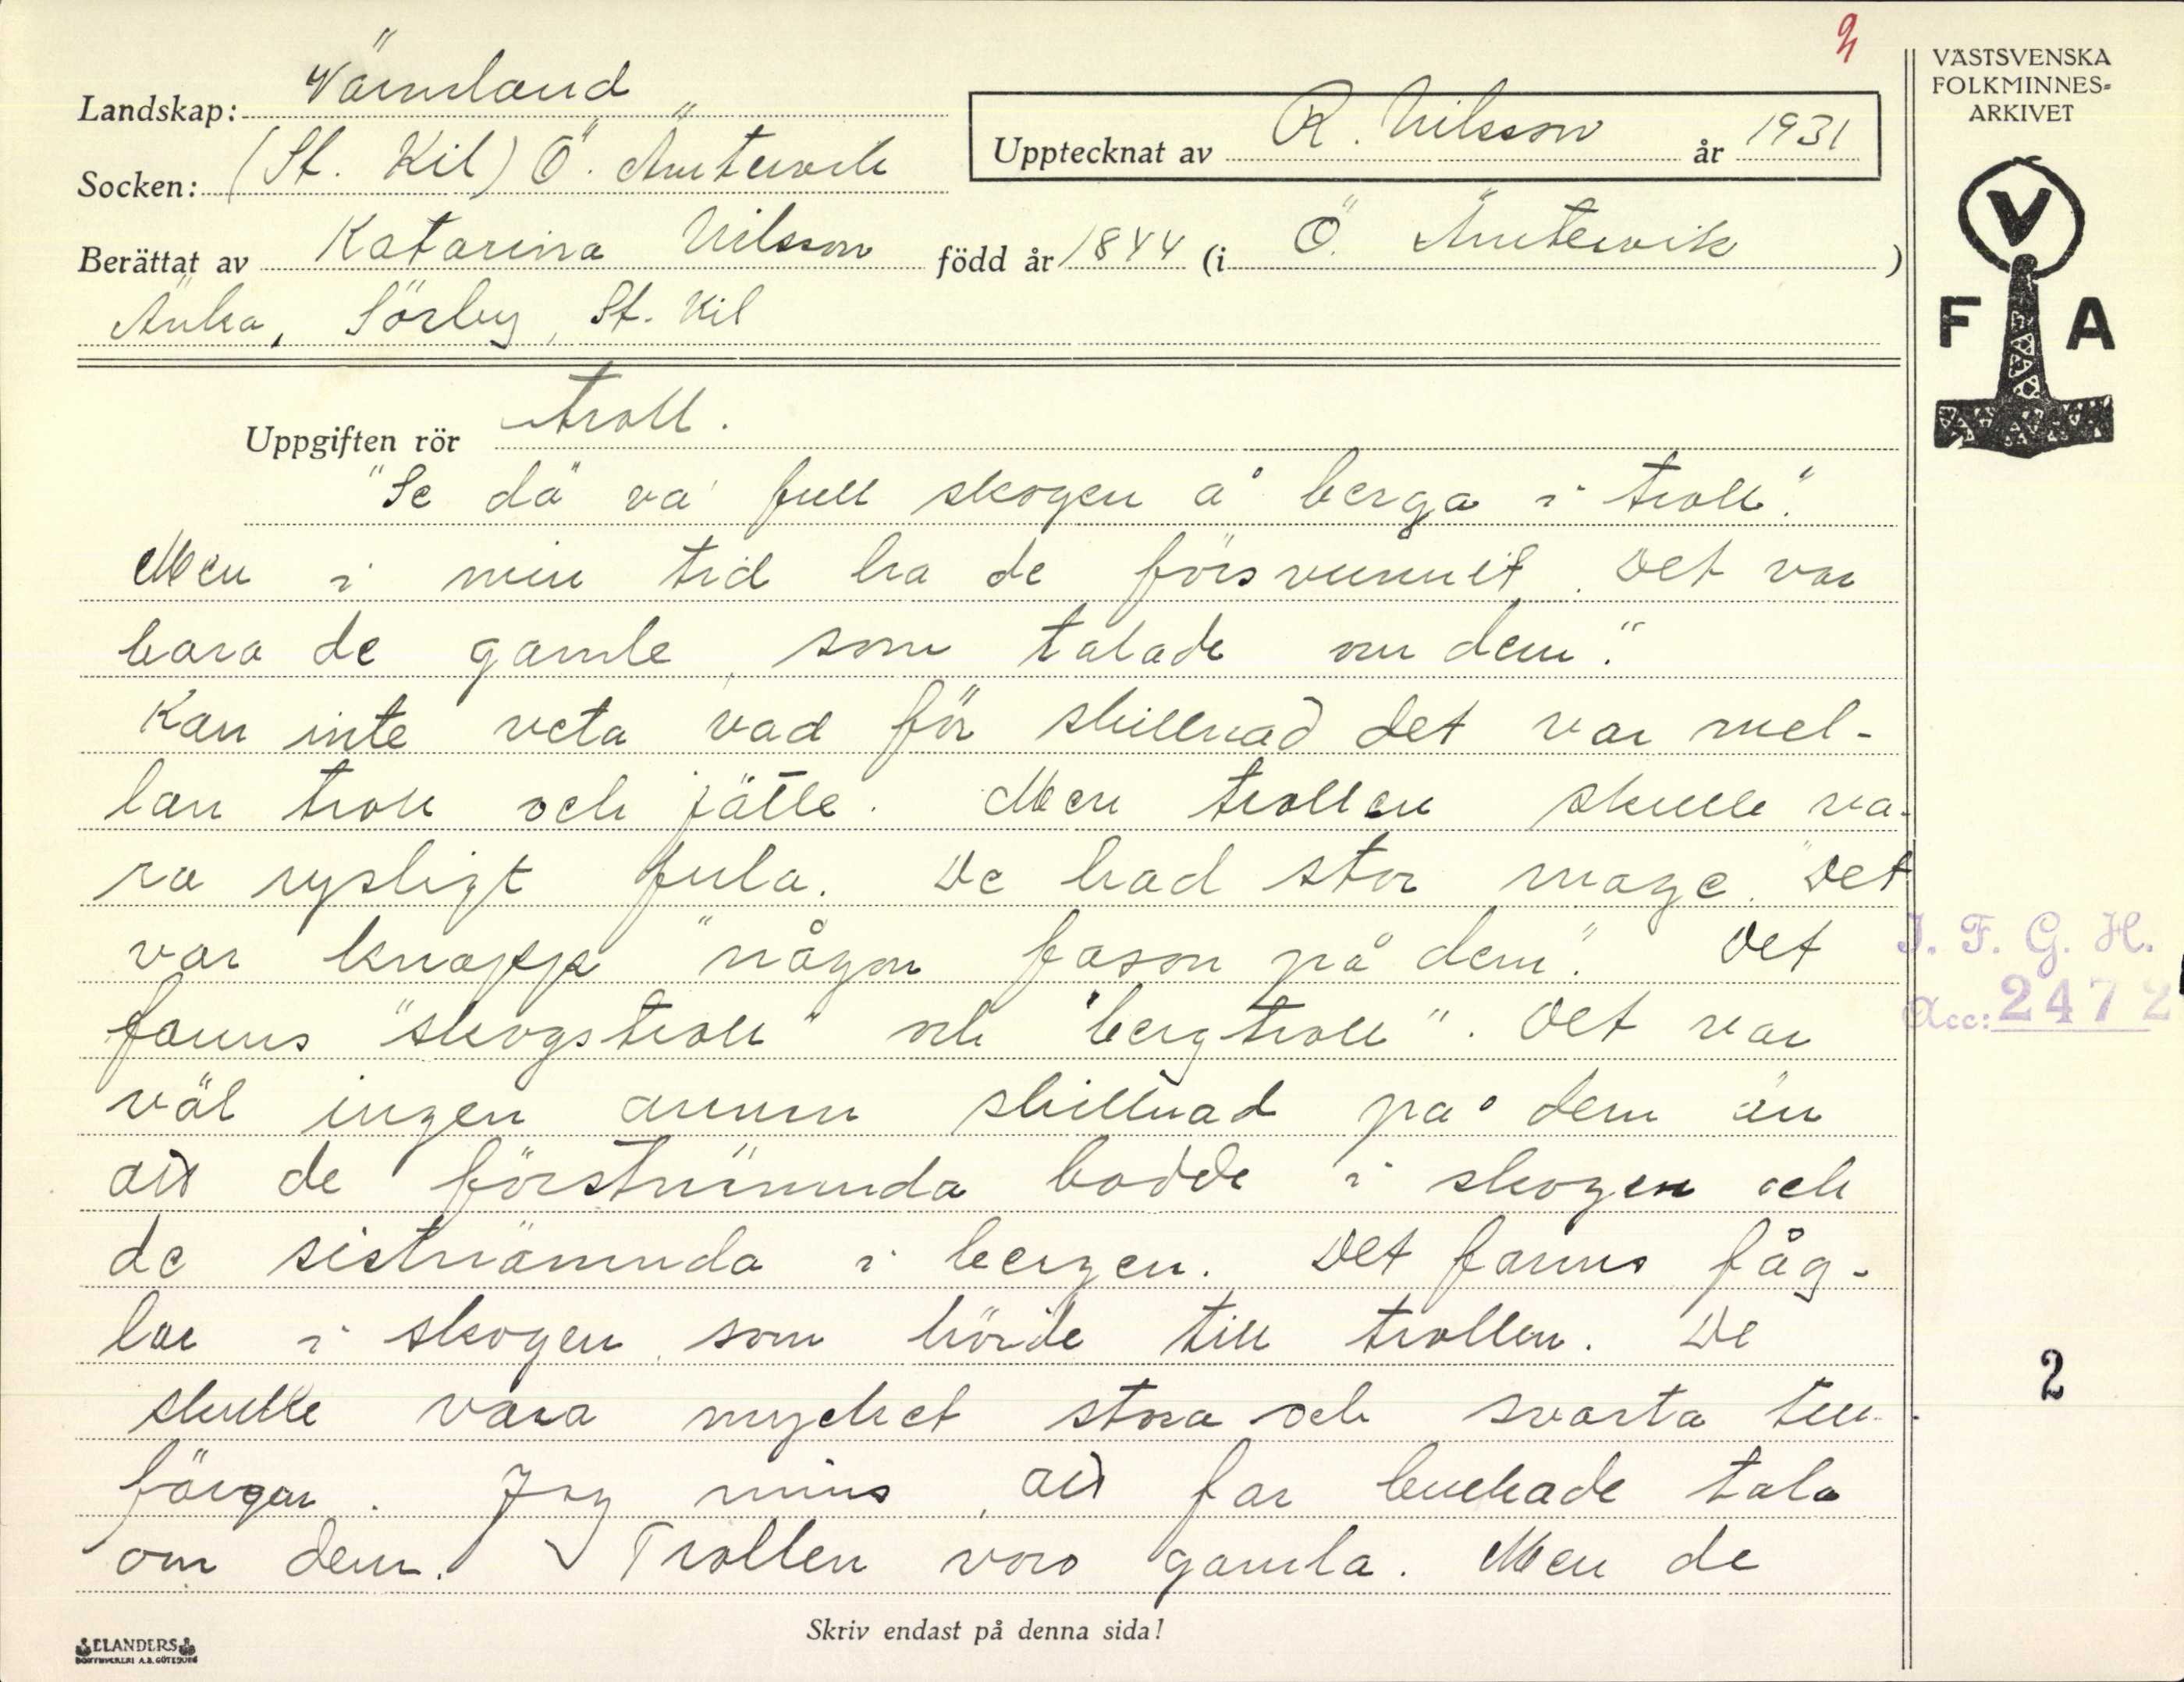 2
Landskap: Värmland
Socken: (St. Kil) Ö. Ämtervik
Upptecknat av R. Nilsson år 1931
Berättat av Katarina Nilsson född år 1844 (i Ö. Ämtervik)
Änka, Sörby, St. Kil
VÄSTSVENSKA
FOLKMINNES-
ARKIVET
V
F A
Uppgiften rör troll.
"Se dä va' full skogen å berga i troll."
Men i min tid ha de försvunnit. Det var
bara de gamle, som talade om dem."
Kan inte veta vad för skillnad det var mel-
lan troll och jätte. Men trollen skulle va-
ra rysligt fula. De had stor mage. "Det
var knapp "någon fason på dem." Det
fanns "skogstroll" och "bergtroll". Det var
väl ingen annan skillnad på dem än
att de förstnämnda bodde i skogen och
de sistnämnda i bergen. Det fanns fåg-
lar i skogen, som hörde till trollen. De
skulle vara mycket stora och svarta till
färgen. Jag mins, att far brukade tala
om dem. Trollen voro gamla. Men de
I. F. G. H.
Acc: 2472
2
Skriv endast på denna sida!
ELANDERS
BOKTRYCKERI A.B. GÖTEBORG